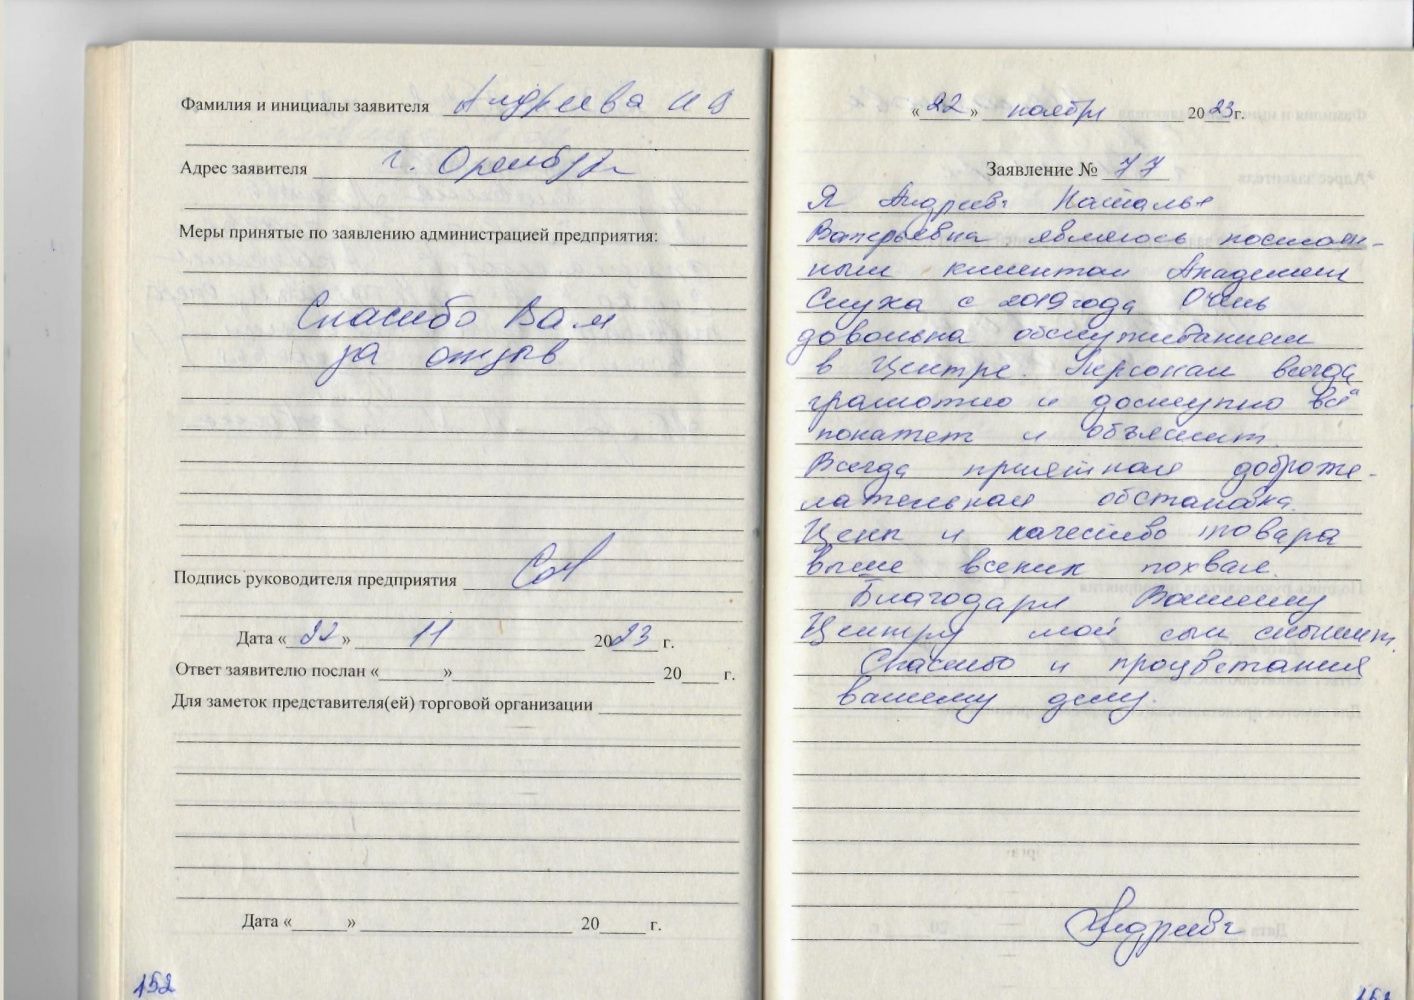 Фамилия и инициалы заявителя Андреева Н В
Адрес заявителя г. Оренбург
Меры принятые по заявлению администрацией предприятия:
Спасибо Вам
за отзыв
Подпись руководителя предприятия
Дата «22» 11 2023 г.
Ответ заявителю послан «» 20 г.
Для заметок представителя(ей) торговой организации
Дата «» 20 г.
152
«22» ноября 2023г.
Заявление № 77
Я Андреева Наталья
Валерьевна являюсь постоян-
ным клиентом Академии
Слуха с 2019 года Очень
довольна обслуживанием
в Центре. Персонал всегда
грамотно и доступно всё
покажет и объяснит.
Всегда приятная доброже-
лательная обстановка.
Цена и качество товара
выше всяких похвал.
Благодаря Вашему
Центру мой сын слышит.
Спасибо и процветания
вашему делу.
Андреева